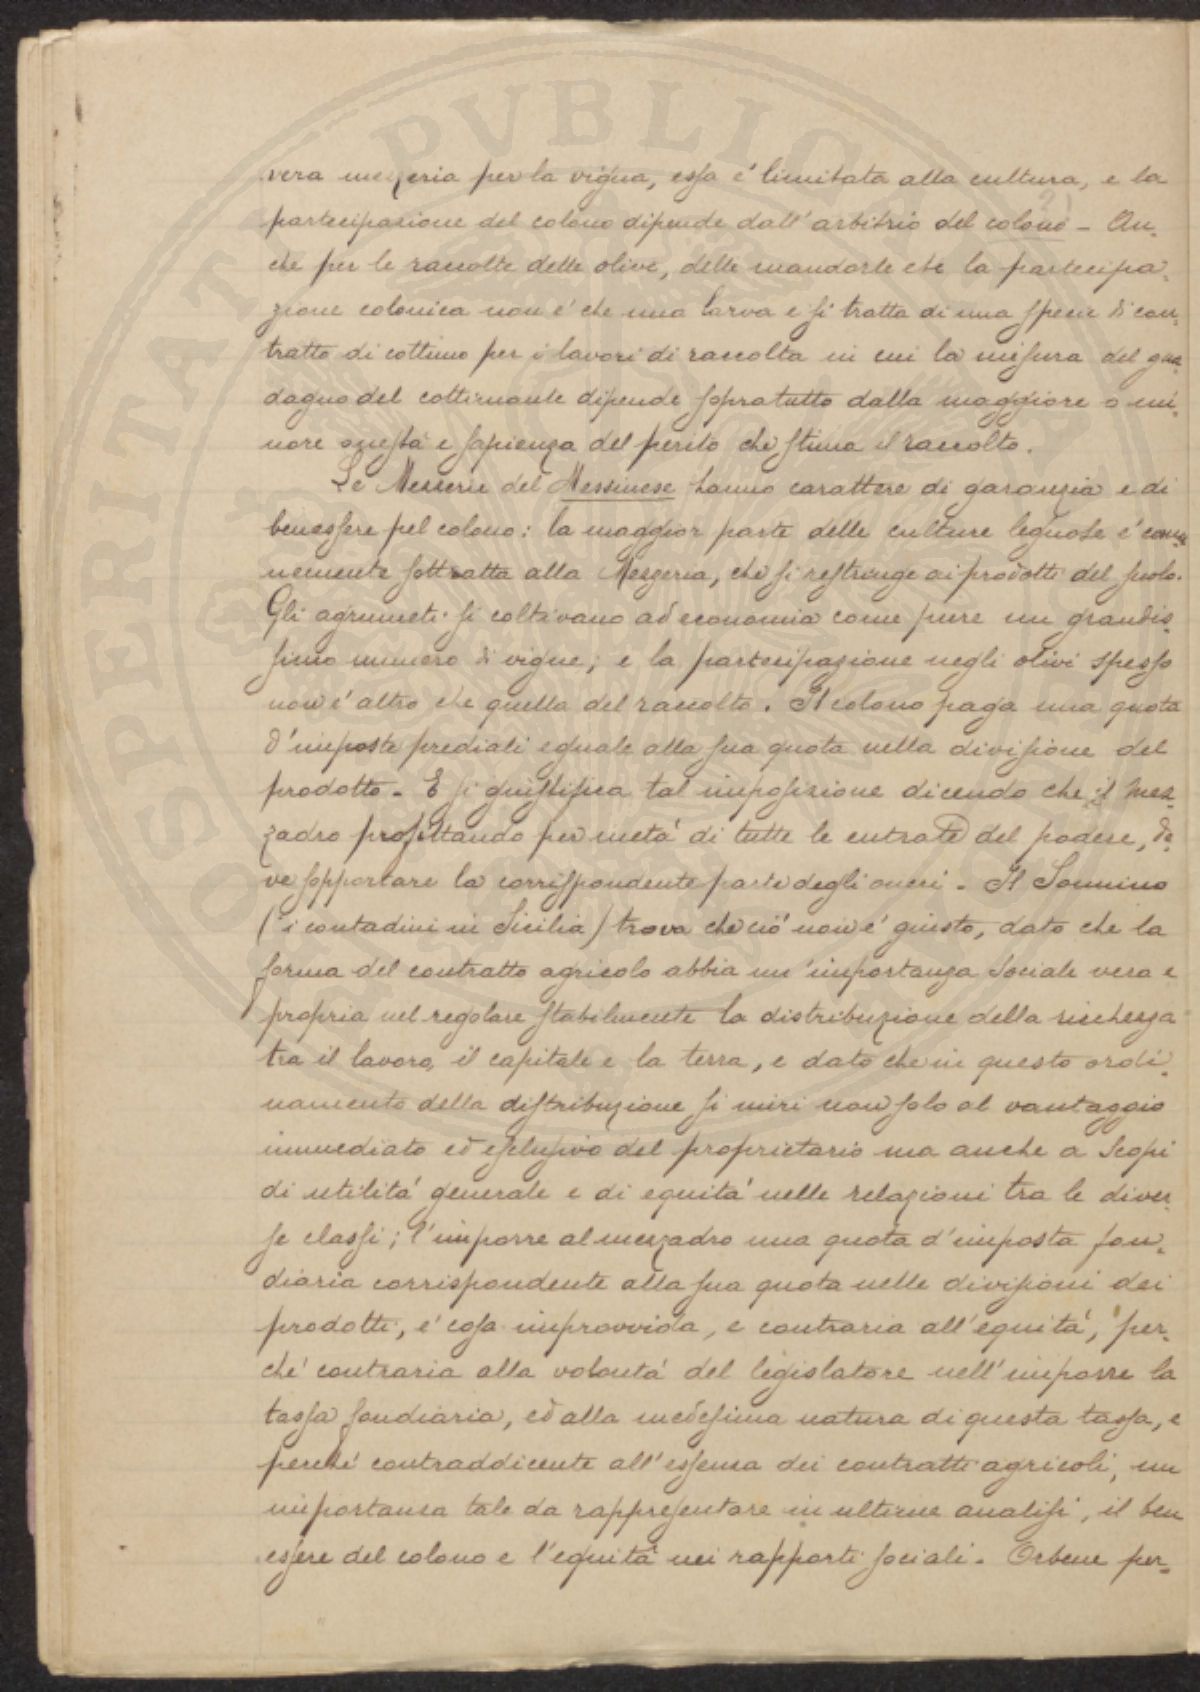 vera mezzeria per la vigna, essa è limitata alla cultura, e la
partecipazione del colono dipende dall'arbitrio del colono - An-
che per le raccolte delle olive, delle mandorle etc la partecipa-
zione colonica non è che una larva e si tratta di una specie di con-
tratto di cottimo per i lavori di raccolta in cui la misura del gua-
dagno del cottimante dipende sopratutto dalla maggiore o mi-
nore onestà e sapienza del perito che stima il raccolto.
Le Mezzerie del Messinese hanno carattere di garanzia e di
benessere pel colono: la maggior parte delle culture legnose è comu-
nemente sottratta alla Mezzeria, che si restringe ai prodotti del suolo.
Gli agrumeti si coltivano ad economia come pure un grandis-
simo numero di vigne; e la partecipazione negli olivi spesso
non è altro che quella del raccolto. Il colono paga una quota
d'imposte prediali eguale alla sua quota nella divisione del
prodotto - E si giustifica tal imposizione dicendo che il mez-
zadro profittando per metà di tutte le entrate del podere, de-
ve sopportare la corrispondente parte degli oneri - Il Sonnino
(i contadini in Sicilia) trova che ciò non è giusto, dato che la
forma del contratto agricolo abbia un'importanza sociale vera e
propria nel regolare stabilmente la distribuzione della ricchezza
tra il lavoro, il capitale e la terra, e dato che in questo ordi-
namento della distribuzione si miri non solo al vantaggio
immediato ed esclusivo del proprietario ma anche a scopi
di utilità generale e di equità nelle relazioni tra le diver-
se classi; l'imporre al mezzadro una quota d'imposta fon-
diaria corrispondente alla sua quota nelle divisioni dei
prodotti, è cosa improvvida, e contraria all'equità, per-
chè contraria alla volontà del legislatore nell'imporre la
tassa fondiaria, ed alla medesima natura di questa tassa, e
perchè contraddicente all'essenza dei contratti agricoli, un
importanza tale da rappresentare in ultime analisi, il ben
essere del colono e l'equità nei rapporti sociali. Orbene per-
PROSPERITATI PVBLICAE